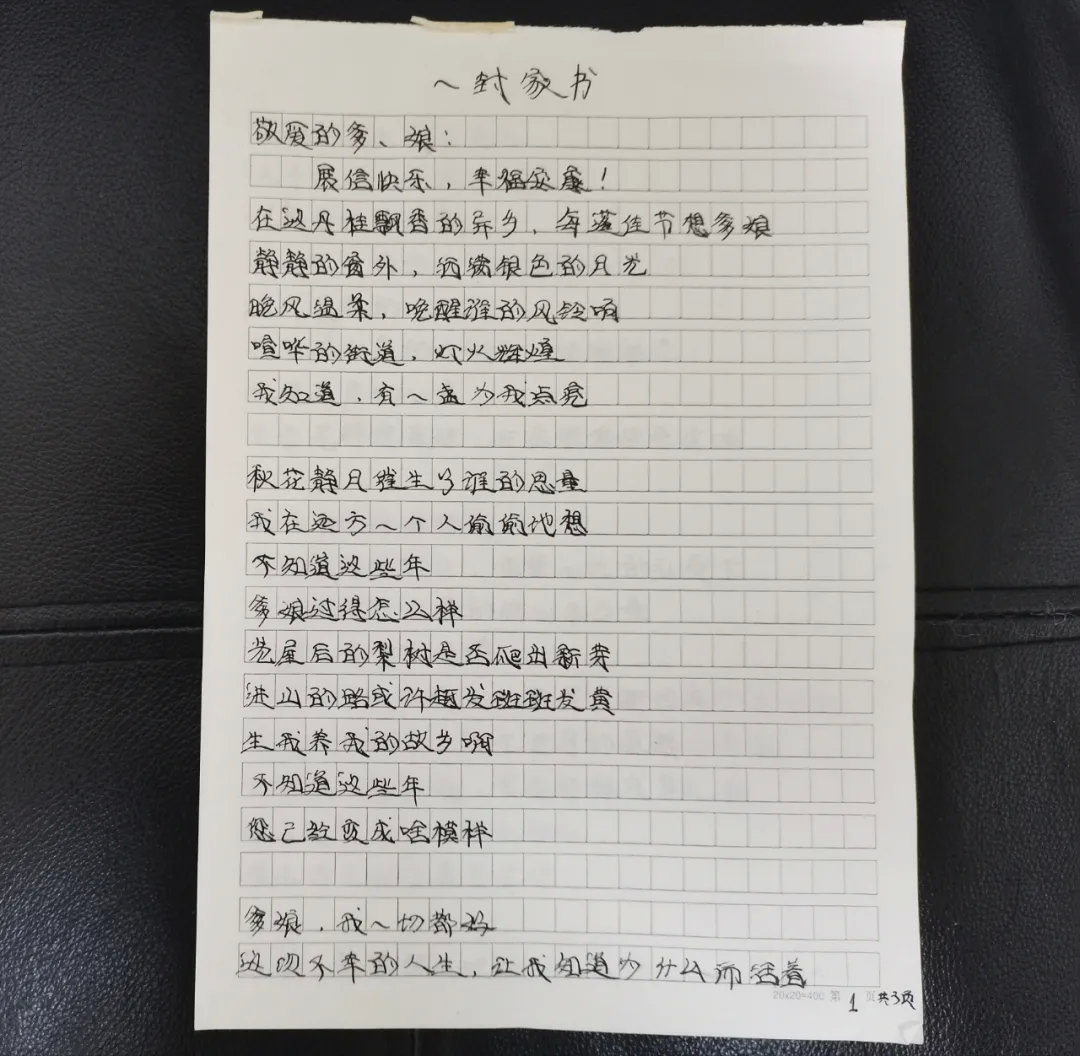 一封家书
敬爱的爹、娘：
展信快乐，幸福安康！
在这丹桂飘香的异乡，每逢佳节想爹娘
静静的窗外，洒满银色的月光
晚风温柔，唤醒谁的风铃响
喧哗的街道，灯火辉煌
我知道，有一盏为我点亮
秋花静月催生了谁的思量
我在远方一个人偷偷地想
不知道这些年
爹娘过得怎么样
老屋后的梨树是否爬出新芽
进山的路或许越发斑斑发黄
生我养我的故乡啊
不知道这些年
您已经变成啥模样
爹娘，我一切都好
这次不幸的人生，让我知道为什么而活着
20x20=400 第 1 页 共3页